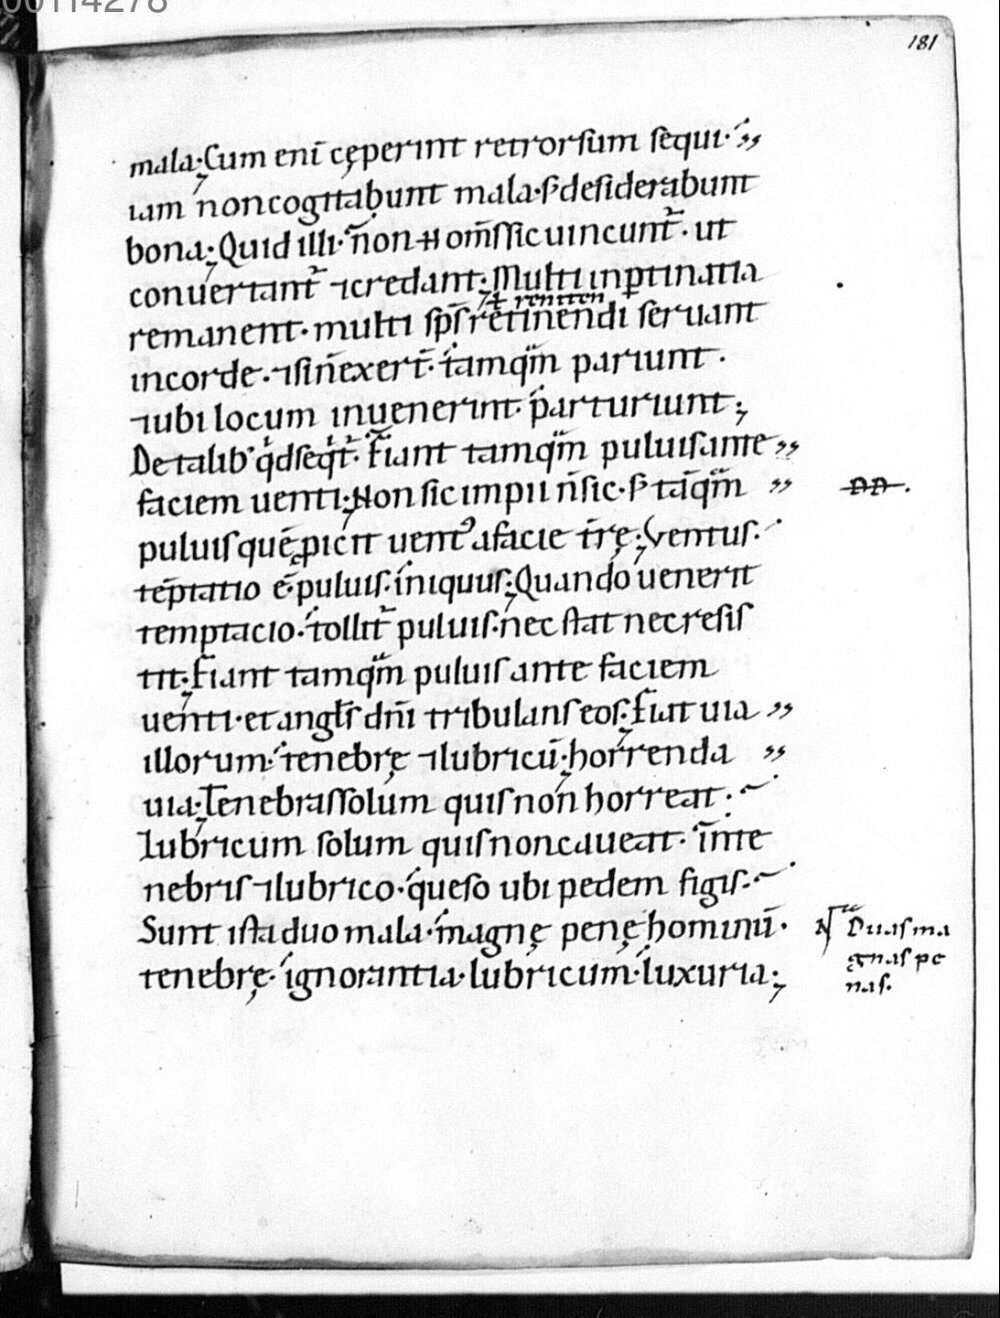 181
mala; Cum enī cęperint retrorsum sequi·
iam non cogitabunt mala· s̄ desiderabunt
bona; Quid illi· ñon n̄ om̄s sic uincunt᷑· ut
conuertant᷑ ⁊ credant; Multi in ptinatia
ł reniten
remanent· multi sp̄s retinendi seruant
in corde· ⁊ si n̄ exert̄· tamqm̄ pariunt·
⁊ ubi locum inuenerint· parturiunt;
De talib' qd seqt᷑· Fiant tamqm̄ puluis ante
faciem uenti; Non sic impii n̄ sic· s̄ tāqm̄
puluis quē p̱icit uent᷒ a facie tr̄ę; Ventus·
tēptatio ē· puluis· iniquus; Quando uenerit
temptacio· tollit᷑ puluis· nec stat nec resis
tit; Fiant tamqm̄ puluis ante faciem
uenti· et angls̄ dn̄i tribulans eos· Fiat uia
illorum· tenebrę ⁊ lubricū; horrenda
uia; Tenebras solum quis non horreat·
Lubricum solum quis non caueat· in te
nebris ⁊ lubrico· queso ubi pedem figis·
Sunt ista duo mala· magnę penę hominū·
tenebrę· ignorantia· lubricum· luxuria;
Duas ma
gnas pe
nas.